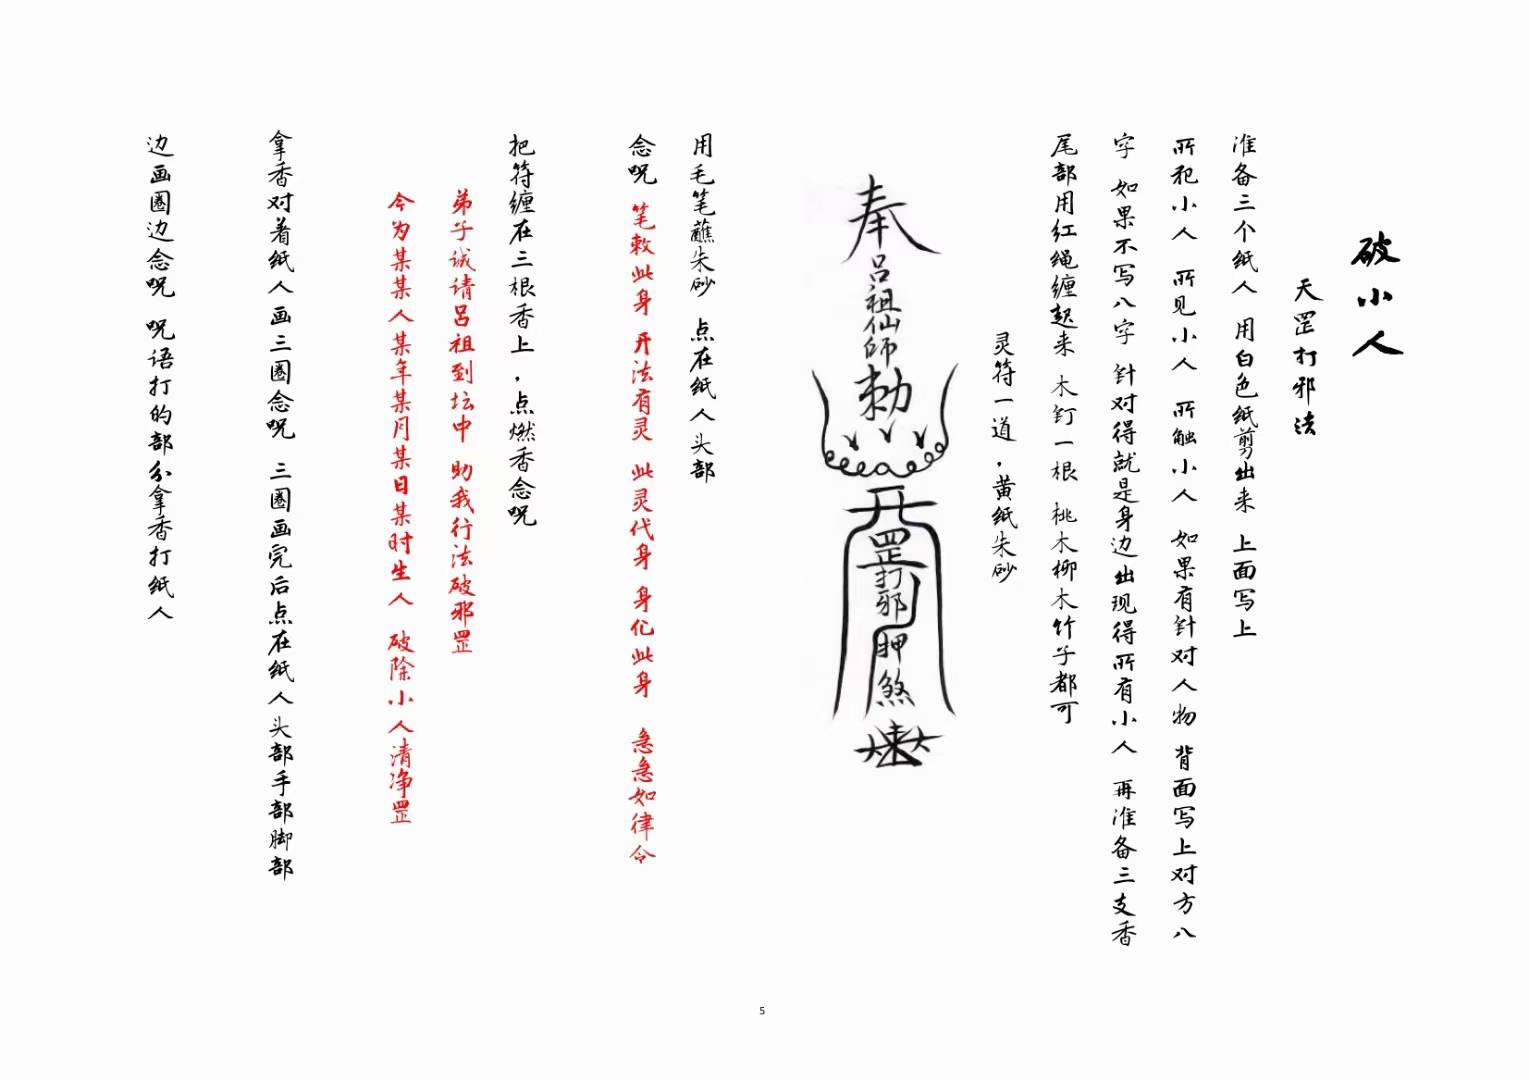 破小人
天罡打邪法
准备三个纸人 用白色纸剪出来 上面写上
所犯小人 所见小人 所触小人 如果有针对人物 背面写上对方八
字 如果不写八字 针对得就是身边出现得所有小人 再准备三支香
尾部用红绳缠起来 木钉一根 桃木柳木竹子都可
灵符一道，黄纸朱砂
奉
呂祖仙師
勅
罡打邪
押
煞
用毛笔蘸朱砂 点在纸人头部
念呪 笔敕此身 开法有灵 此灵代身 身化此身 急急如律令
把符缠在三根香上，点燃香念呪
弟子诚请吕祖到坛中 助我行法破邪罡
今为某某人某年某月某日某时生人 破除小人清净罡
拿香对着纸人画三圈念呪 三圈画完后点在纸人头部手部脚部
边画圈边念呪 呪语打的部分拿香打纸人
5